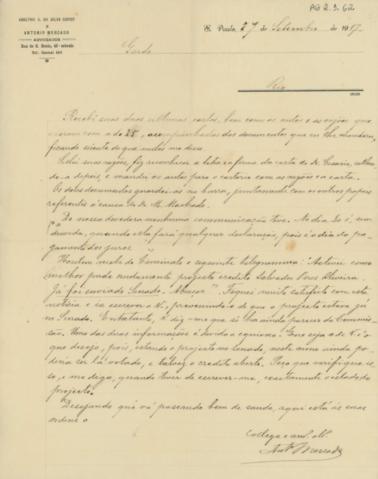 PG 2.3.62
ADOLPHO A. DA SILVA GORDO
E
ANTONIO MERCADO
ADVOGADOS
Rua de S. Bento, 45 - sobrado
S. Paulo, 27 de Setembro de 1917.
Gordo
Rio
Recebi suas duas ultimas cartas, bem como os autos e as razões que
vieram com a de 25, acompanhadas dos documentos que eu lhe mandara,
ficando sciente do que nellas me disse.
Li suas razões, fiz reconhecer a letra e firma da carta do Dr.
a depois, e mandei os autos para o cartorio com as razões e a carta.
Os dois documentos guardei-os na burra, juntamente com os outros papeis
referentes á causa do Dr. M. Machado.
De nossa devedora nenhuma communicação tive. No dia 30 é, sem
duvida, quando ella fará qualquer declaração, pois é o dia do pa-
gamento dos juros.
Hontem recebi do seguinte telegramma:
como melhor pude andamento projecto credito Salvador Pires Oliveira.
Já foi enviado Senado. Abraços". Fiquei muito satisfeito com esta
noticia e ia escrever a V., prevenindo-o de que o projecto estava já
no Senado. Entretanto, V. diz-me que só lha ainda parecer da Commis-
são. Uma das duas informações é devida a equivoco. Que seja a de V. é o
que desejo, pois, estando o projecto no Senado, neste mez ainda po-
deria ser lá votado, e talvez o credito aberto. Peço que verifique is-
so, e me diga, quando tiver de escrever-me, exactamente o estado do
projecto.
Desejando que vá passando bem de saude, aqui está ás suas
ordens o
Collega e am.º
Ant. Mercado